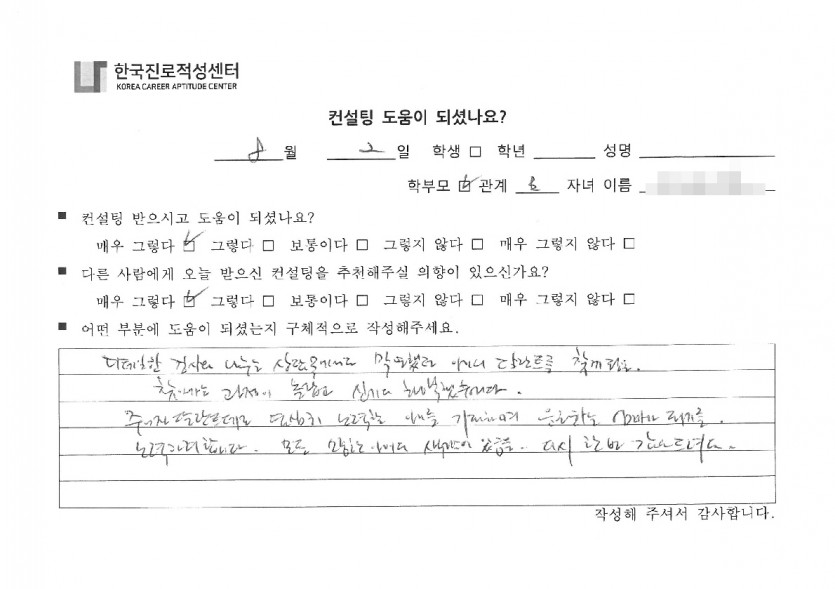 한국진로적성센터
KOREA CAREER APTITUDE CENTER
컨설팅 도움이 되셨나요?
8 월 2 일 학생 □ 학년 성명
학부모 ☑ 관계 모 자녀 이름
■ 컨설팅 받으시고 도움이 되셨나요?
매우 그렇다 ☑ 그렇다 □ 보통이다 □ 그렇지 않다 □ 매우 그렇지 않다 □
■ 다른 사람에게 오늘 받으신 컨설팅을 추천해주실 의향이 있으신가요?
매우 그렇다 ☑ 그렇다 □ 보통이다 □ 그렇지 않다 □ 매우 그렇지 않다 □
■ 어떤 부분에 도움이 되셨는지 구체적으로 작성해주세요.
디테일한 검사와 나누는 막연했던 아이의 달란트를
찾아가는 과정이 놀랍고 신기하고 행복했습니다.
열심히 노력하는 아이를 응원하는 엄마가 되기를
노력하려합니다. 모든 다시 한번 감사드려요.
작성해 주셔서 감사합니다.